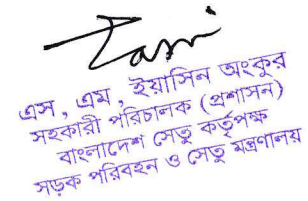 এস, এম, ইয়াসিন অংকুর
সহকারী পরিচালক (প্রশাসন)
বাংলাদেশ সেতু কর্তৃপক্ষ
সড়ক পরিবহন ও সেতু মন্ত্রণালয়